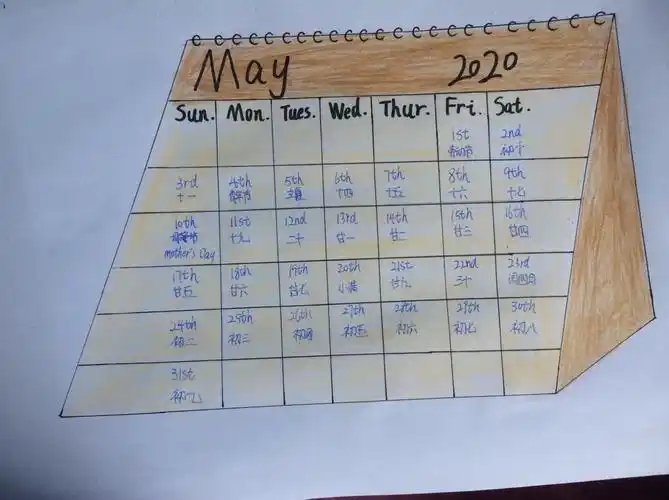 May 2020
Sun. Mon. Tues. Wed. Thur. Fri. Sat.
1st 2nd
劳动节 初十
3rd 4th 5th 6th 7th 8th 9th
十一 青年节 立夏 十四 十五 十六 十七
10th 11st 12nd 13rd 14th 15th 16th
母亲节 十九 二十 廿一 廿二 廿三 廿四
mother's Day
17th 18th 19th 20th 21st 22nd 23rd
廿五 廿六 廿七 小满 廿九 三十 闰四月
24th 25th 26th 27th 28th 29th 30th
初二 初三 初四 初五 初六 初七 初八
31st
初九